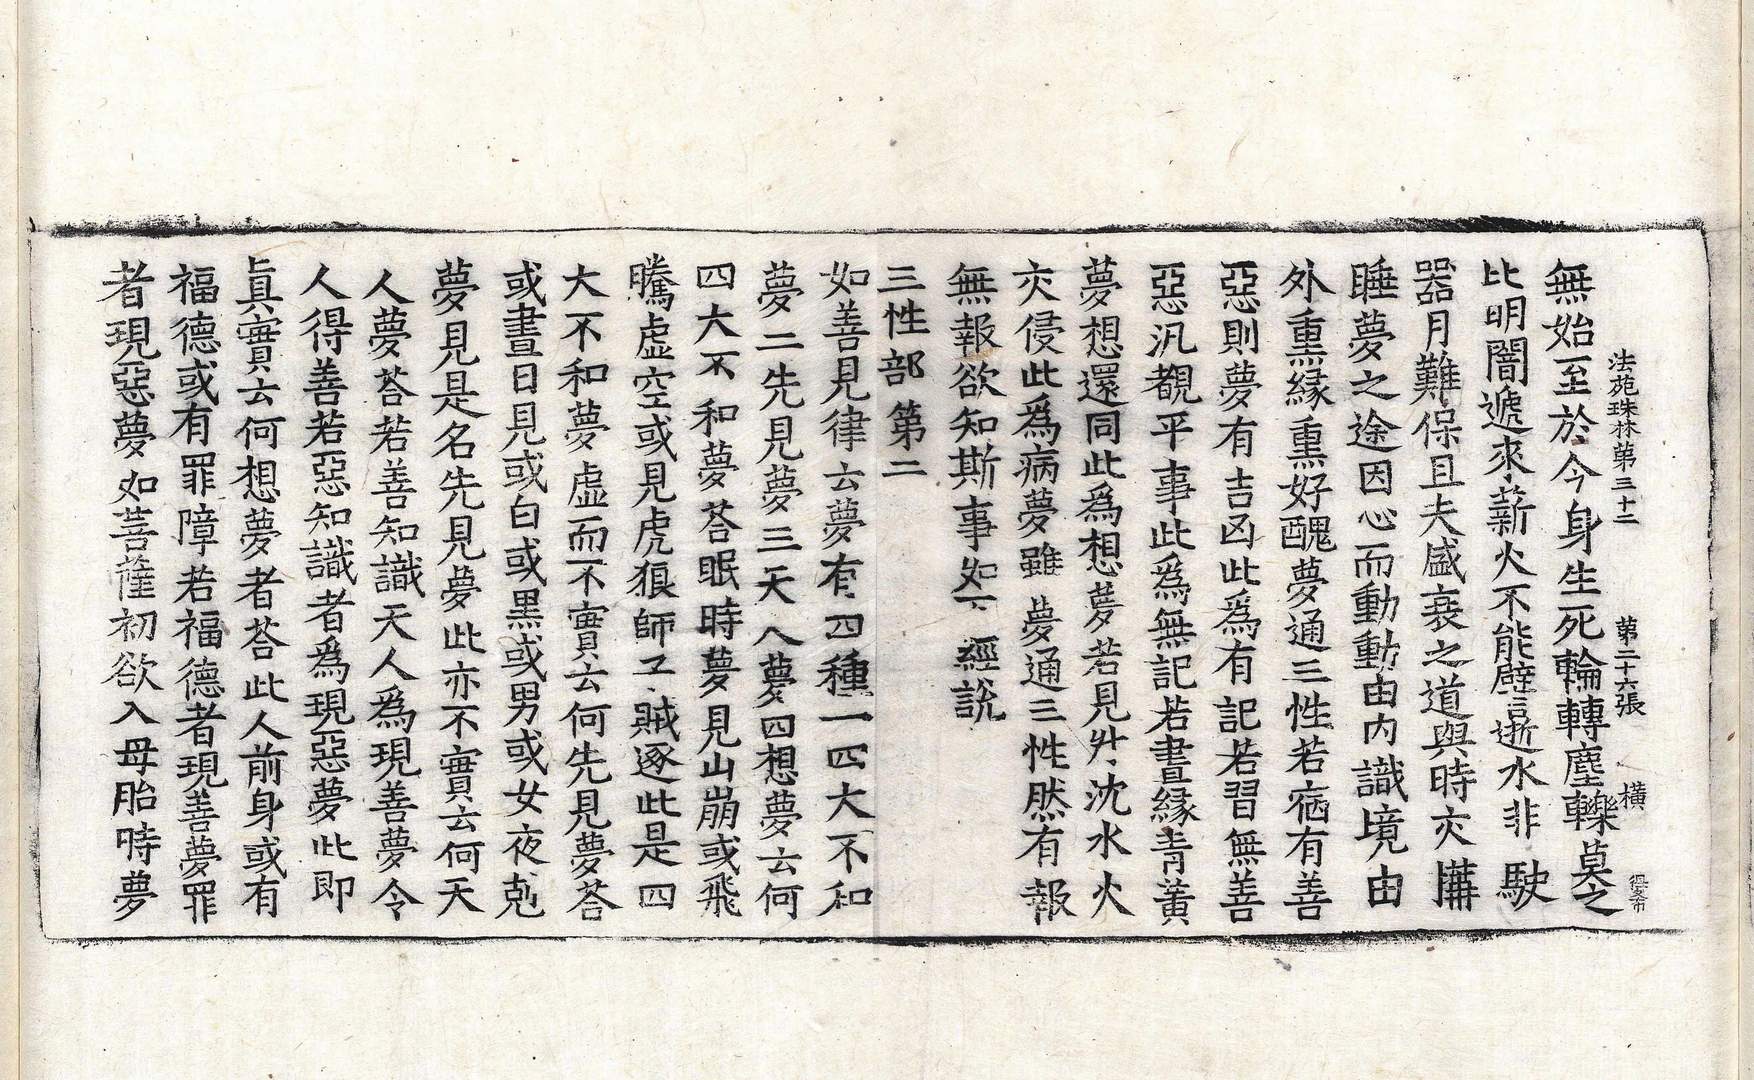 法苑珠林第三十二　第二十六張　橫
無始至於今身生死輪轉塵轢莫之
比明闇遞來薪火不能譬言逝水非駛
器月難保且夫盛衰之道與時交構
睡夢之途因心而動動由內識境由
外熏緣熏好醜夢通三性若宿有善
惡則夢有吉凶此爲有記若習無善
惡汎覩平事此爲無記若晝緣青黃
夢想還同此爲想夢若見升沈水火
交侵此爲病夢雖夢通三性然有報
無報欲知斯事如下經說
三性部第二
如善見律云夢有四種一四大不和
夢二先見夢三天人夢四想夢云何
四大不和夢荅眠時夢見山崩或飛
騰虛空或見虎狼師子賊逐此是四
大不和夢虛而不實云何先見夢荅
或晝日見或白或黑或男或女夜剋
夢見是名先見夢此亦不實云何天
人夢荅若善知識天人爲現善夢令
人得善若惡知識者爲現惡夢此即
眞實云何想夢者荅此人前身或有
福德或有罪障若福德者現善夢罪
者現惡夢如菩薩初欲入母胎時夢